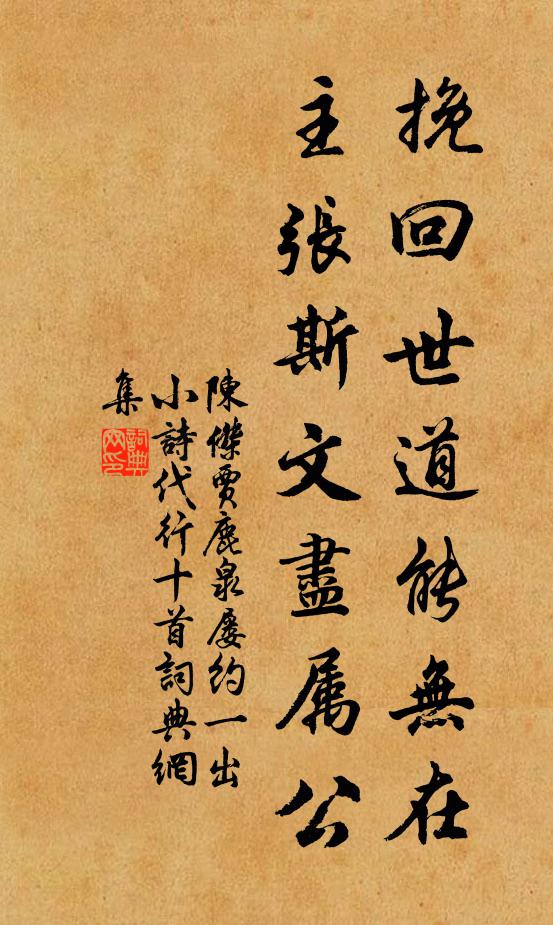 挽回世道能無在
主張斯文盡属公
陳傑賈鹿泉屡約一出
小詩代行十首詞典網
集
詞典网印